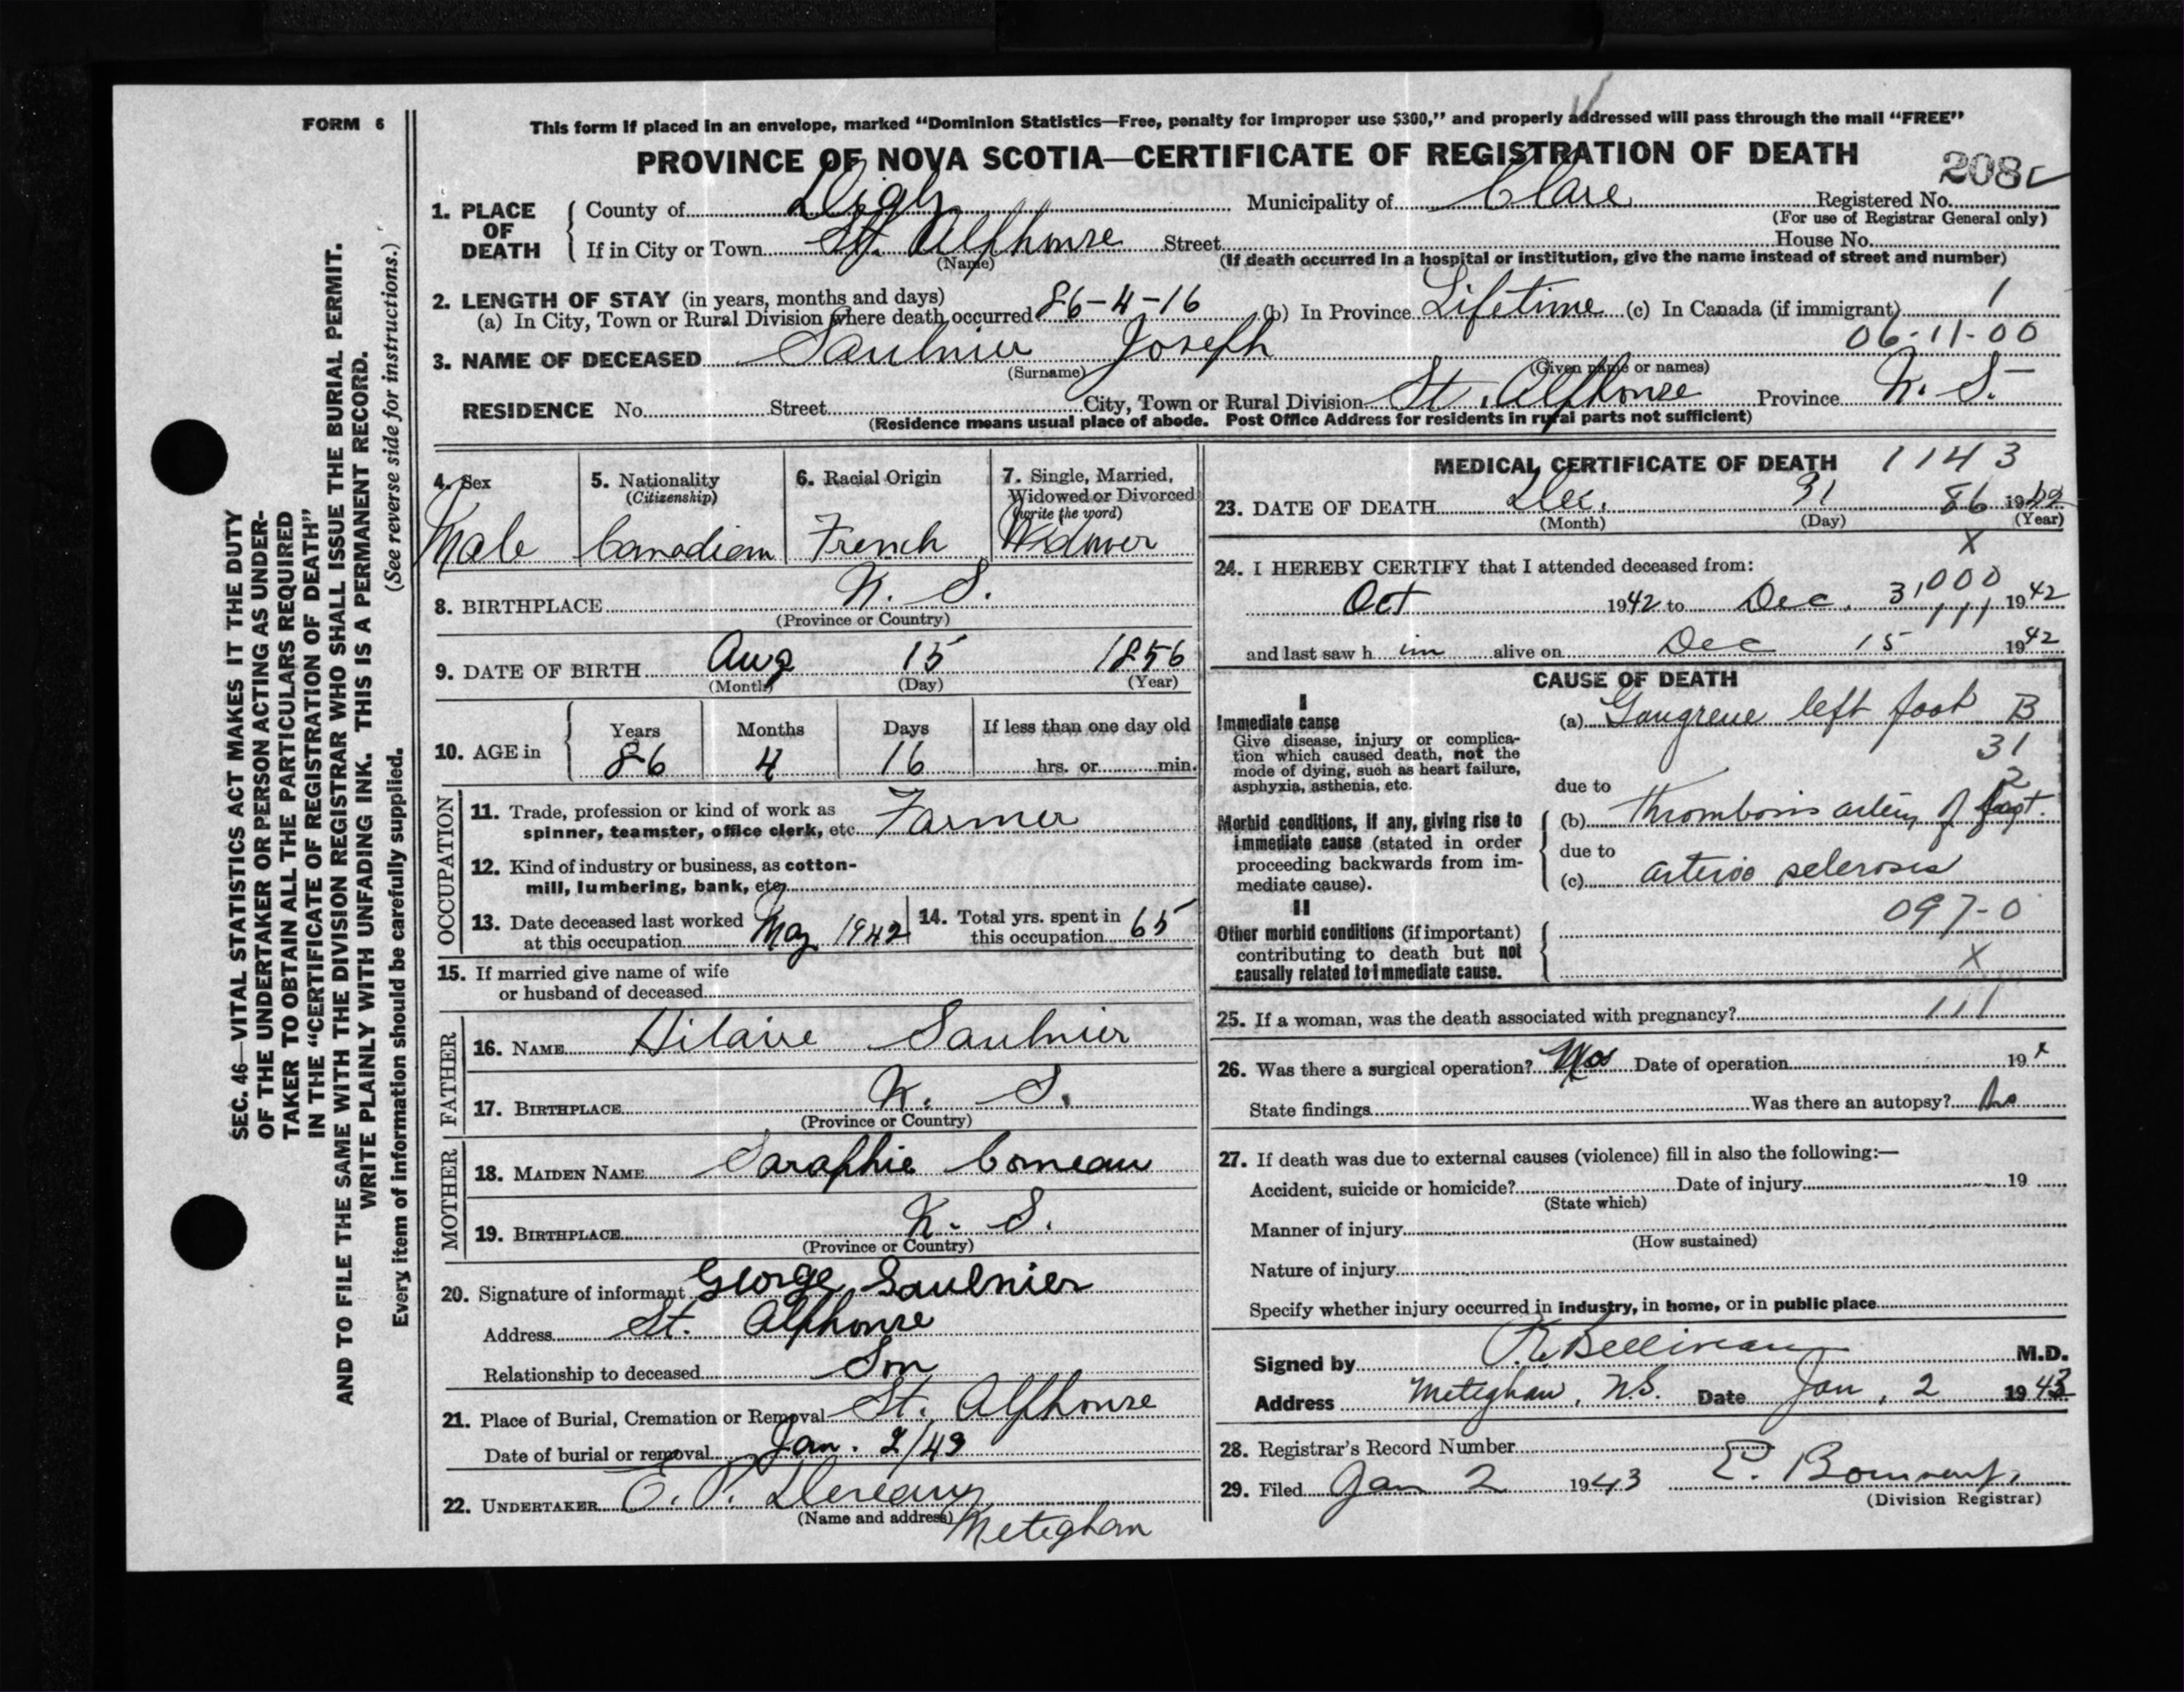 FORM 6
This form if placed in an envelope, marked "Dominion Statistics—Free, penalty for improper use $300," and properly addressed will pass through the mail "FREE"
PROVINCE OF NOVA SCOTIA—CERTIFICATE OF REGISTRATION OF DEATH
208
1. PLACE OF DEATH
County of Digby Municipality of Clare Registered No.
(For use of Registrar General only)
If in City or Town St. Alphonse Street House No.
(Name) (If death occurred in a hospital or institution, give the name instead of street and number)
2. LENGTH OF STAY (in years, months and days)
(a) In City, Town or Rural Division where death occurred 86-4-16 (b) In Province Lifetime (c) In Canada (if immigrant) 1
06-11-00
3. NAME OF DECEASED Saulnier Joseph
(Surname) (Given name or names)
RESIDENCE No. Street City, Town or Rural Division St. Alphonse Province N. S.
(Residence means usual place of abode. Post Office Address for residents in rural parts not sufficient)
4. Sex
Male
5. Nationality
(Citizenship)
Canadian
6. Racial Origin
French
7. Single, Married,
Widowed or Divorced
(write the word)
Widower
8. BIRTHPLACE N. S.
(Province or Country)
9. DATE OF BIRTH Aug 15 1856
(Month) (Day) (Year)
10. AGE in
Years Months Days If less than one day old
86 4 16 hrs. or min.
OCCUPATION
11. Trade, profession or kind of work as
spinner, teamster, office clerk, etc. Farmer
12. Kind of industry or business, as cotton-
mill, lumbering, bank, etc.
13. Date deceased last worked
at this occupation May 1942
14. Total yrs. spent in
this occupation 65
15. If married give name of wife
or husband of deceased
FATHER
16. NAME Hilaire Saulnier
17. BIRTHPLACE N. S.
(Province or Country)
MOTHER
18. MAIDEN NAME Saraphie Comeau
19. BIRTHPLACE N. S.
(Province or Country)
20. Signature of informant George Saulnier
Address St. Alphonse
Relationship to deceased Son
21. Place of Burial, Cremation or Removal St. Alphonse
Date of burial or removal Jan. 2/43
22. UNDERTAKER E. P.
(Name and address) Meteghan
MEDICAL CERTIFICATE OF DEATH 1143
23. DATE OF DEATH Dec. 31 86 1942
(Month) (Day) (Year)
X
24. I HEREBY CERTIFY that I attended deceased from:
000
Oct 1942 to Dec. 31 1942
111
and last saw h im alive on Dec 15 1942
CAUSE OF DEATH
I
Immediate cause
Give disease, injury or complica-
tion which caused death, not the
mode of dying, such as heart failure,
asphyxia, asthenia, etc.
(a) Gangrene left foot B
31
2
due to
Morbid conditions, if any, giving rise to
immediate cause (stated in order
proceeding backwards from im-
mediate cause).
(b) Thrombosis artery of foot.
due to
(c) arterio sclerosis
II
097-0
Other morbid conditions (if important)
contributing to death but not
causally related to immediate cause.
X
25. If a woman, was the death associated with pregnancy? 111
26. Was there a surgical operation? No Date of operation 19 x
State findings Was there an autopsy? No
27. If death was due to external causes (violence) fill in also the following:—
Accident, suicide or homicide? Date of injury 19
(State which)
Manner of injury
(How sustained)
Nature of injury
Specify whether injury occurred in industry, in home, or in public place
Signed by Belliveau M.D.
Address Meteghan, N.S. Date Jan. 2 1943
28. Registrar's Record Number
29. Filed Jan 2 1943 P.
(Division Registrar)
SEC. 46—VITAL STATISTICS ACT MAKES IT THE DUTY
OF THE UNDERTAKER OR PERSON ACTING AS UNDER-
TAKER TO OBTAIN ALL THE PARTICULARS REQUIRED
IN THE "CERTIFICATE OF REGISTRATION OF DEATH"
AND TO FILE THE SAME WITH THE DIVISION REGISTRAR WHO SHALL ISSUE THE BURIAL PERMIT.
WRITE PLAINLY WITH UNFADING INK. THIS IS A PERMANENT RECORD.
(See reverse side for instructions.)
Every item of information should be carefully supplied.